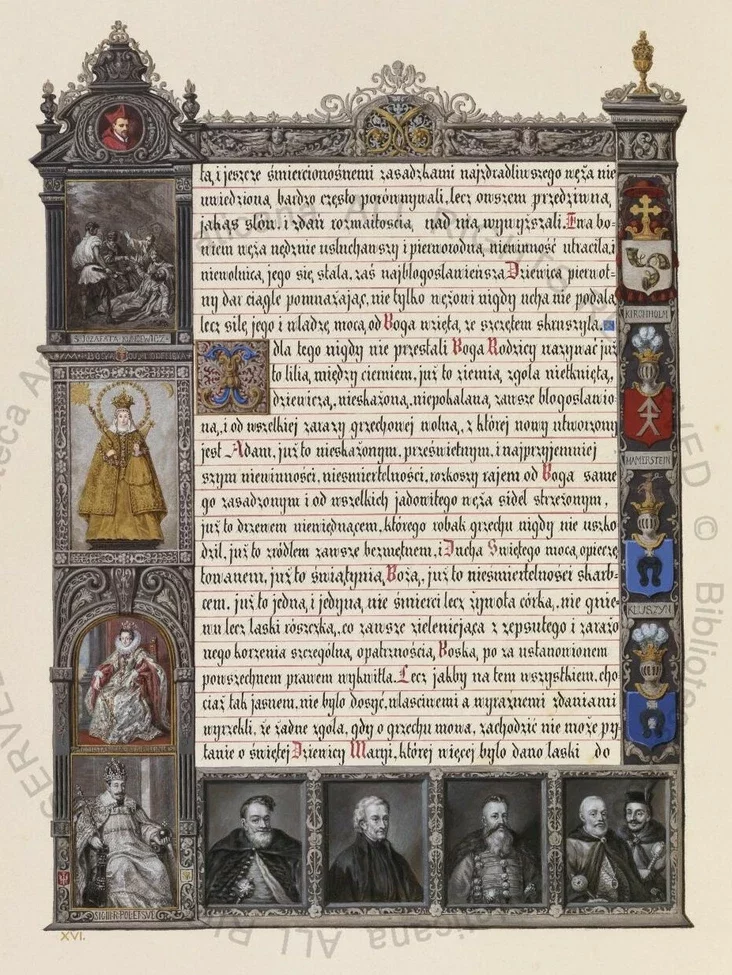 tą, i jeszcze śmiercionośnemi zasadzkami najzdradliwszego węża nie
uwiedzioną, bardzo często porównywali, lecz owszem przedziwną,
jakąś słów, i zdań rozmaitością, nad nią wywyższali. Ewa bo-
wiem węża nędznie usłuchawszy i pierworodną, niewinność utraciła, i
niewolnicą, jego się, stała, zaś najbłogosławieńsza Dziewica pierwot-
ny dar ciągle pomnażając, nie tylko wężowi nigdy ucha nie podała,
lecz siłę, jego i władzę mocą, od Boga wziętą, ze szczętem skruszyła.
dla tego nigdy nie przestali Boga Rodzicy nazywać już
to lilią, między cierniem, już to ziemią, zgoła nietkniętą,
dziewiczą, nieskażoną, niepokalaną, zawsze błogosławio-
ną, i od wszelkiej zarazy grzechowej wolną, z której nowy utworzony
jest Adam, już to nieskażonym, prześwietnym, i najprzyjemniej
szym niewinności, nieśmiertelności, rozkoszy rajem od Boga same
go zasadzonym i od wszelkich jadowitego węża sideł strzeżonym,
już to drzewem niewiędnącem, którego robak grzechu nigdy nie uszko
dził, już to źródłem zawsze bezmętnem, i Ducha Świętego mocą, opieczę
towanem, już to świątynią, Bożą, już to nieśmiertelności skarb-
cem, już to jedną, i jedyną, nie śmierci lecz żywota córką, nie gnie-
wu lecz łaski rószczką, co zawsze zieleniejąca z zepsutego i zarażo
nego korzenia szczególną, opatrznością, Boską, po za ustanowionem
powszechnem prawem wykwitła. Lecz jakby na tem wszystkiem, cho
ciaż tak jasnem, nie było dosyć, właściwemi a wyraźnemi zdaniami
wyrzekli, że żadne zgoła, gdy o grzechu mowa, zachodzić nie może py-
tanie o świętej Dziewicy Maryi, której więcej było dano łaski do
S. JOZAFATA KUNCEWICZ
SIG.III.R.POL.ET.SVE
KIRCHHOLM
HAMERSTEIN
KŁUSZYN
XVI.